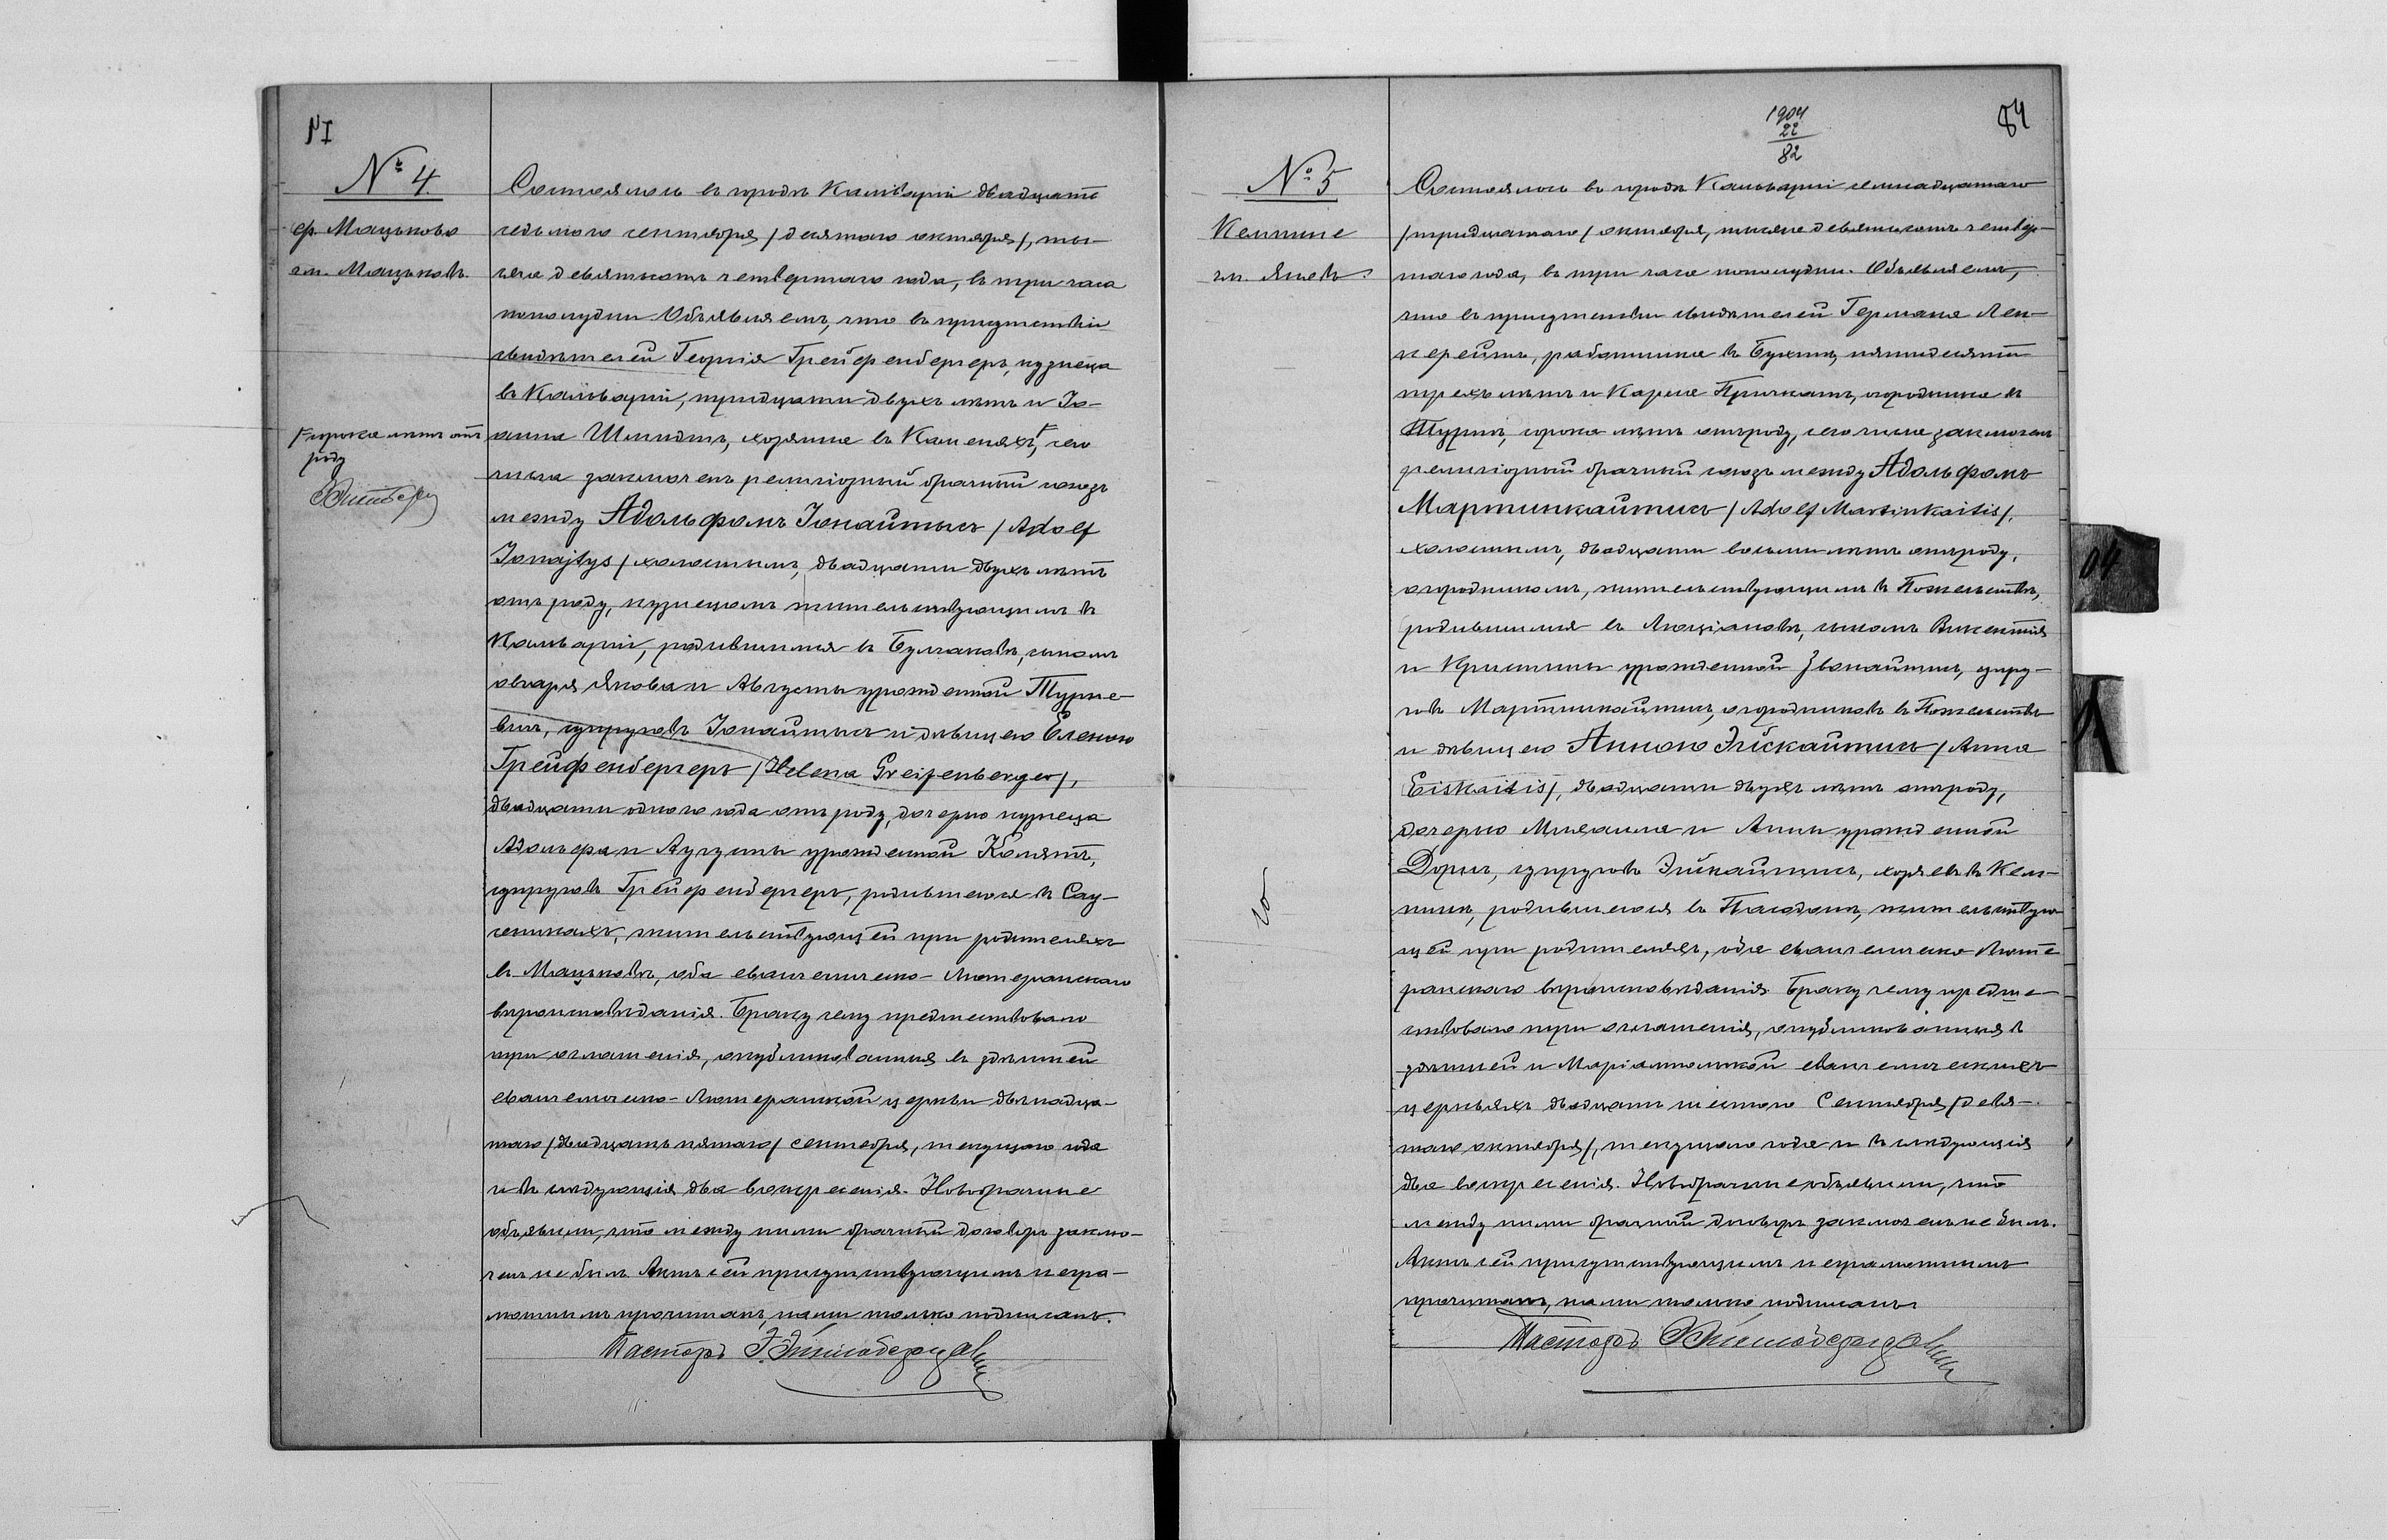 № 4.
ф. Мацьково
гм. Мацьковъ.
Состоялось въ городѣ Кальваріи двадцать
седьмого сентября /десятаго октября/, ты-
сяча девятьсотъ четвертаго года, въ три часа
пополудни. Объявляемъ, что въ присутствіи
свидѣтелей Георгія Грейфенбергеръ, кузнеца
въ Кальваріи, тридцати двухъ лѣтъ и Іо-
анна Шмидтъ, хозяина въ Каменяхъ, сего
сорока лѣтъ отъ
роду
числа заключенъ религіозный брачный союзъ
между Адольфомъ Іонайтысъ /Adolf
Jonajtys/ холостымъ, двадцати двухъ лѣтъ
отъ роду, кузнецомъ жительствующимъ въ
Кальваріи, родившимся въ Булаковѣ, сыномъ
овчаря Якова и Августы урожденной Турне-
вичъ, супруговъ Іонайтысъ и дѣвицею Еленою
Грейфенбергеръ /Helena Greifenberger/,
двадцати одного года отъ роду, дочерью кузнеца
Адольфа и Аугусты урожденной Колятъ,
супруговъ Грейфенбергеръ, родившеюся въ Сау-
сеникахъ, жительствующей при родителяхъ
въ Мацьковѣ, оба евангелическо-лютеранскаго
вѣроисповѣданія. Браку сему предшествовало
три оглашенія, опубликованныя въ здѣшней
евангелическо-лютеранской церкви двѣнадца-
таго /двадцать пятаго/ сентября, текущаго года
и въ слѣдующія два воскресенія. Новобрачные
объявили, что между ними брачный договоръ заклю-
ченъ не былъ. Актъ сей присутствующимъ негра-
мотнымъ прочитанъ, нами только подписанъ.
Пасторъ
1904
22
82
84
№ 5
Келпине
гм. Яневъ.
Состоялось въ городѣ Кальваріи семнадцатаго
/тридцатаго/ октября, тысяча девятьсотъ четвер-
таго года, въ три часа пополудни. Объявляемъ,
что въ присутствіи свидѣтелей Германа Лек-
нерейтъ, работника въ Бухтѣ, пятидесяти
трехъ лѣтъ и Карла Причкатъ, огородника въ
Турнѣ, сорока лѣтъ отъ роду, сего числа заключенъ
религіозный брачный союзъ между Адольфомъ
Мартинкайтисъ /Adolf Martinkaitis/,
холостымъ, двадцати восьми лѣтъ отъ роду,
огородникомъ, жительствующимъ въ Пожельствѣ,
родившимся въ Люціановѣ, сыномъ Викентія
и Кристины урожденной Звонайтисъ, супру-
говъ Мартинкайтисъ, огородниковъ въ Пожельствѣ
и дѣвицею Анною Эйскайтисъ /Anna
Eiskaitis/, двадцати двухъ лѣтъ отъ роду,
дочерью Михаила и Анны урожденной
Дорнъ, супруговъ Эйскайтисъ, хозяевъ въ Кел-
пинѣ, родившеюся въ Плодахъ, жительствую-
щей при родителяхъ, оба евангелическо Люте
ранскаго вѣроисповѣданія. Браку сему предше-
ствовало три оглашенія, опубликованныя въ
здѣшней и Маріампольской евангелическихъ
церквяхъ двадцать шестого Сентября /девя-
таго октября/, текущаго года и въ слѣдующія
два воскресенія. Новобрачные объявили, что
между ними брачный договоръ заключенъ не былъ.
Актъ сей присутствующимъ неграмотнымъ
прочитанъ, нами только подписанъ.
Пасторъ
04